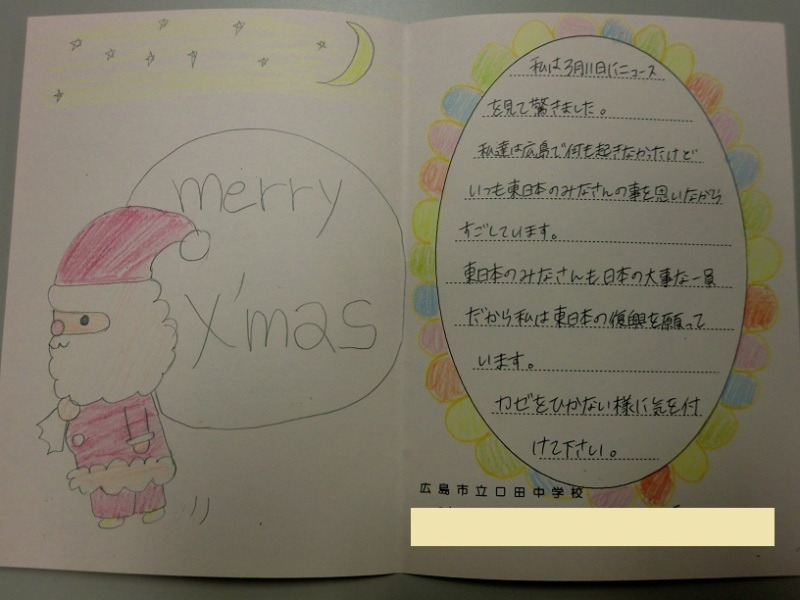 merry
X'mas
私は3月11日にニュース
を見て驚きました。
私達は広島で何も起きなかったけど
いつも東日本のみなさんの事を思いながら
すごしています。
東日本のみなさんも日本の大事な一員
だから私は東日本の復興を願って
います。
カゼをひかない様に気を付
けて下さい。
広島市立口田中学校